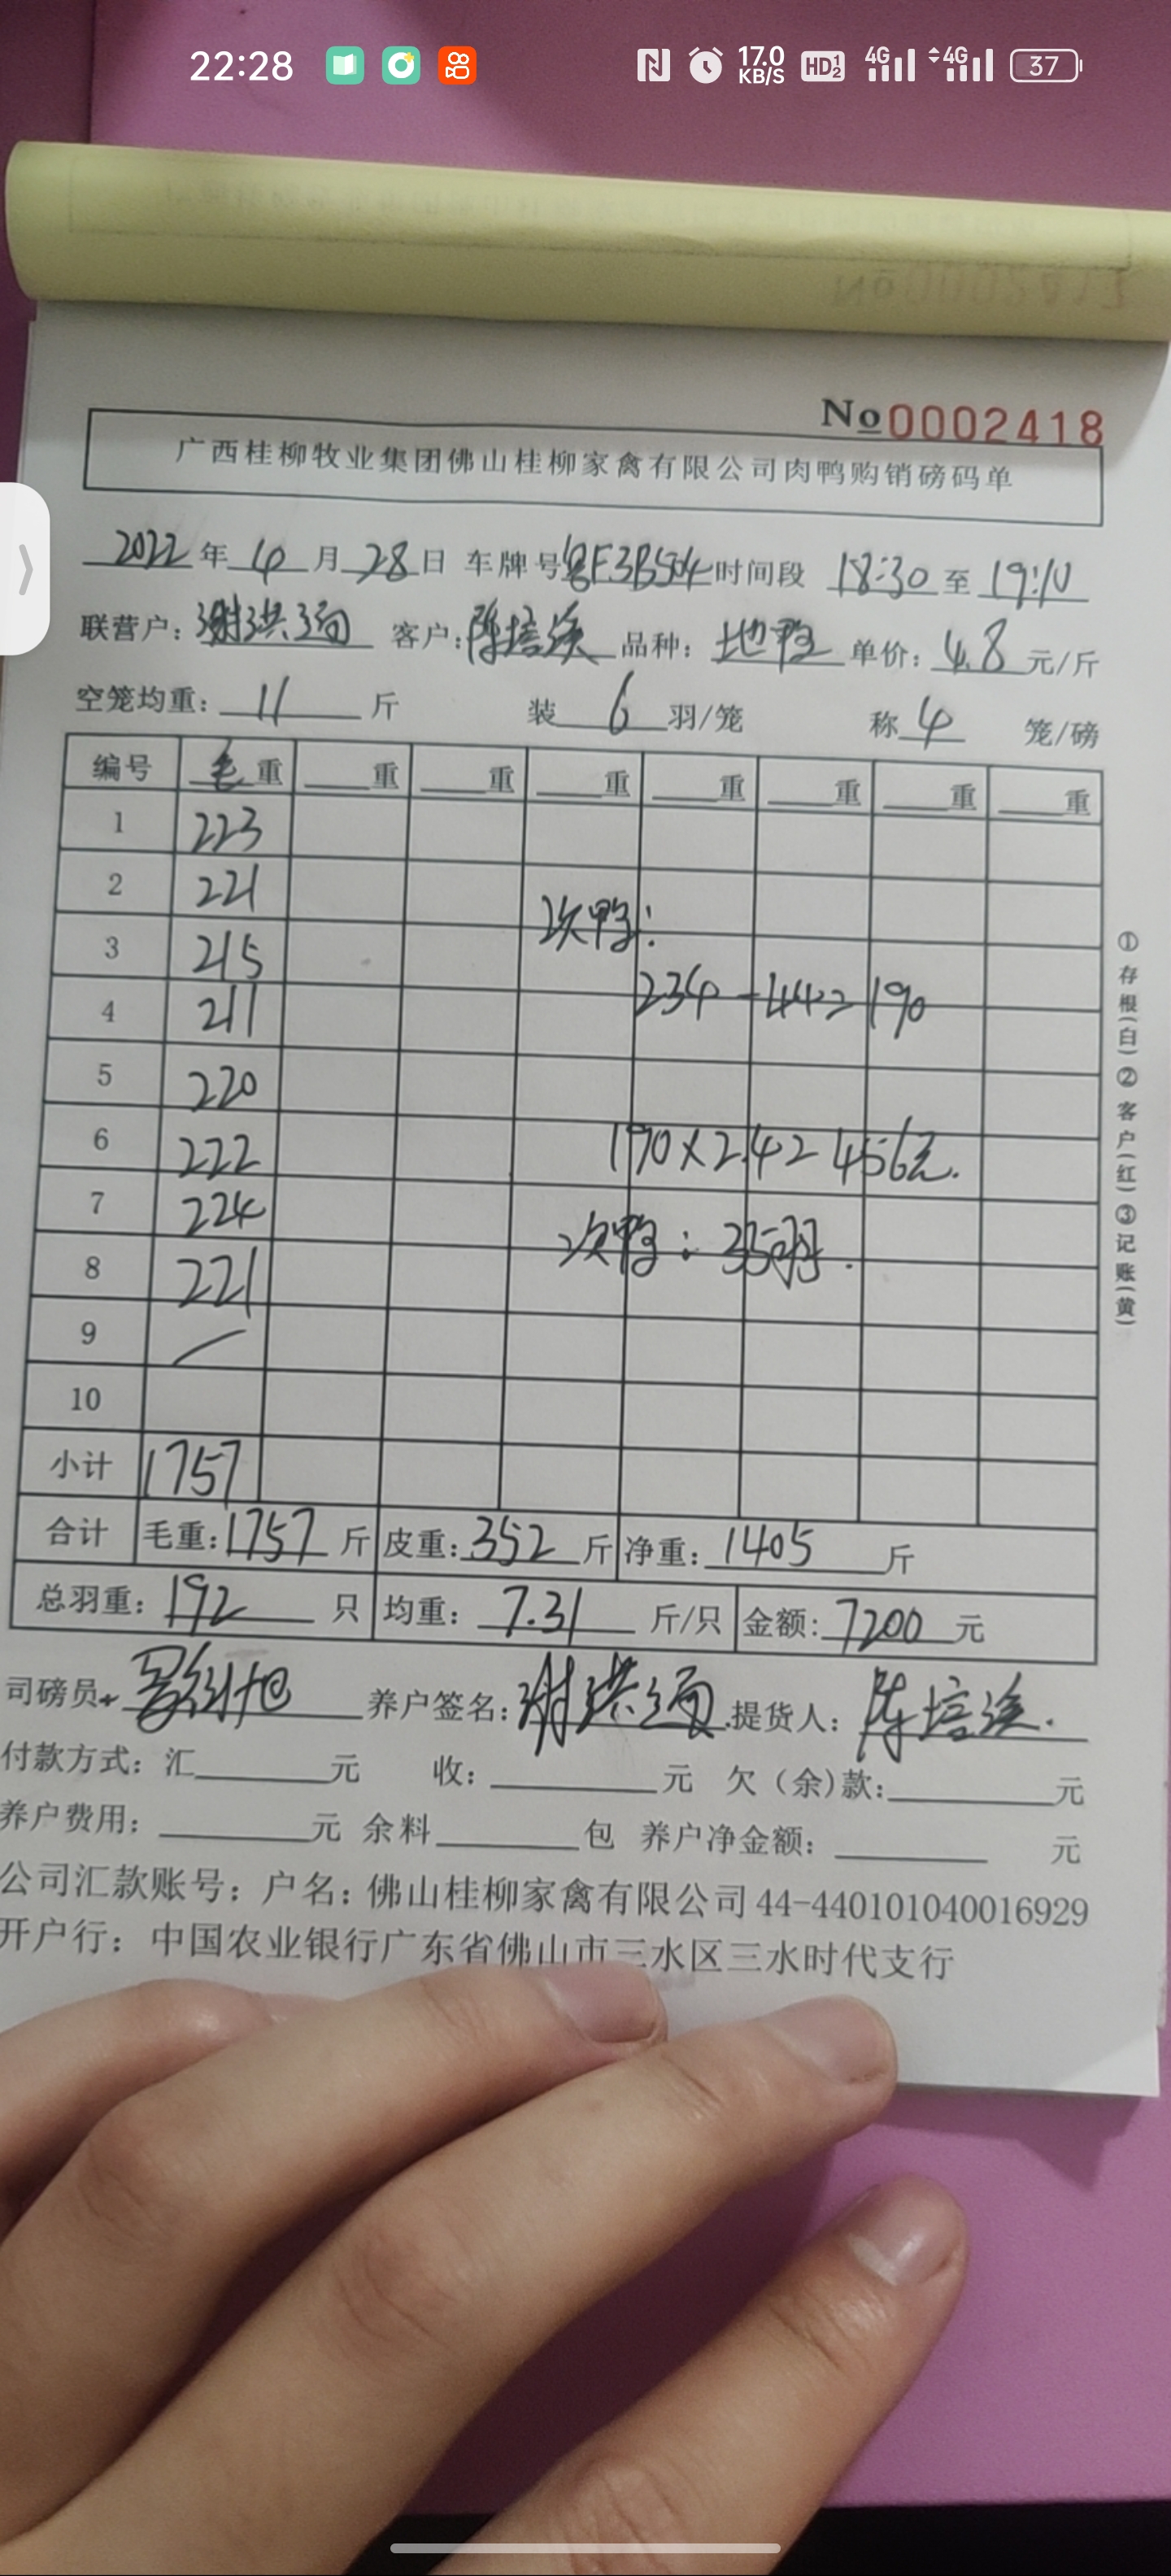 22:28 17.0 KB/S HD 4G 4G 37
No 0002418
广西桂柳牧业集团佛山桂柳家禽有限公司肉鸭购销磅码单
2022年4月28日 车牌号粤F3B504 时间段 18:30 至 19:10
联营户：谢洪通 客户：陈培 品种：地鸭 单价：4.8元/斤
空笼均重：11斤 装6羽/笼 称4笼/磅
编号 毛重 重 重 重 重 重 重 重
1 223
2 221
次鸭：
3 215
234-44=190
4 211
5 220
6 222
190×2.4=456元.
7 224
次鸭：35羽.
8 221
9
10
小计 1757
合计 毛重：1757斤 皮重：352斤 净重：1405斤
总羽重：192只 均重：7.31斤/只 金额：7200元
司磅员 养户签名：谢洪通 提货人：陈培
付款方式：汇 元 收： 元 欠（余）款： 元
养户费用： 元 余料 包 养户净金额： 元
公司汇款账号：户名：佛山桂柳家禽有限公司44-440101040016929
开户行：中国农业银行广东省佛山市三水区三水时代支行
①存根(白)②客户(红)③记账(黄)